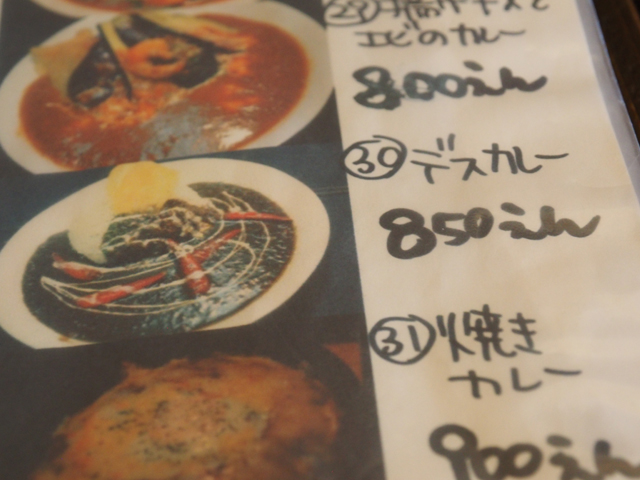 29
エビのカレー
800えん
30 デスカレー
850えん
31 焼き
カレー
900えん